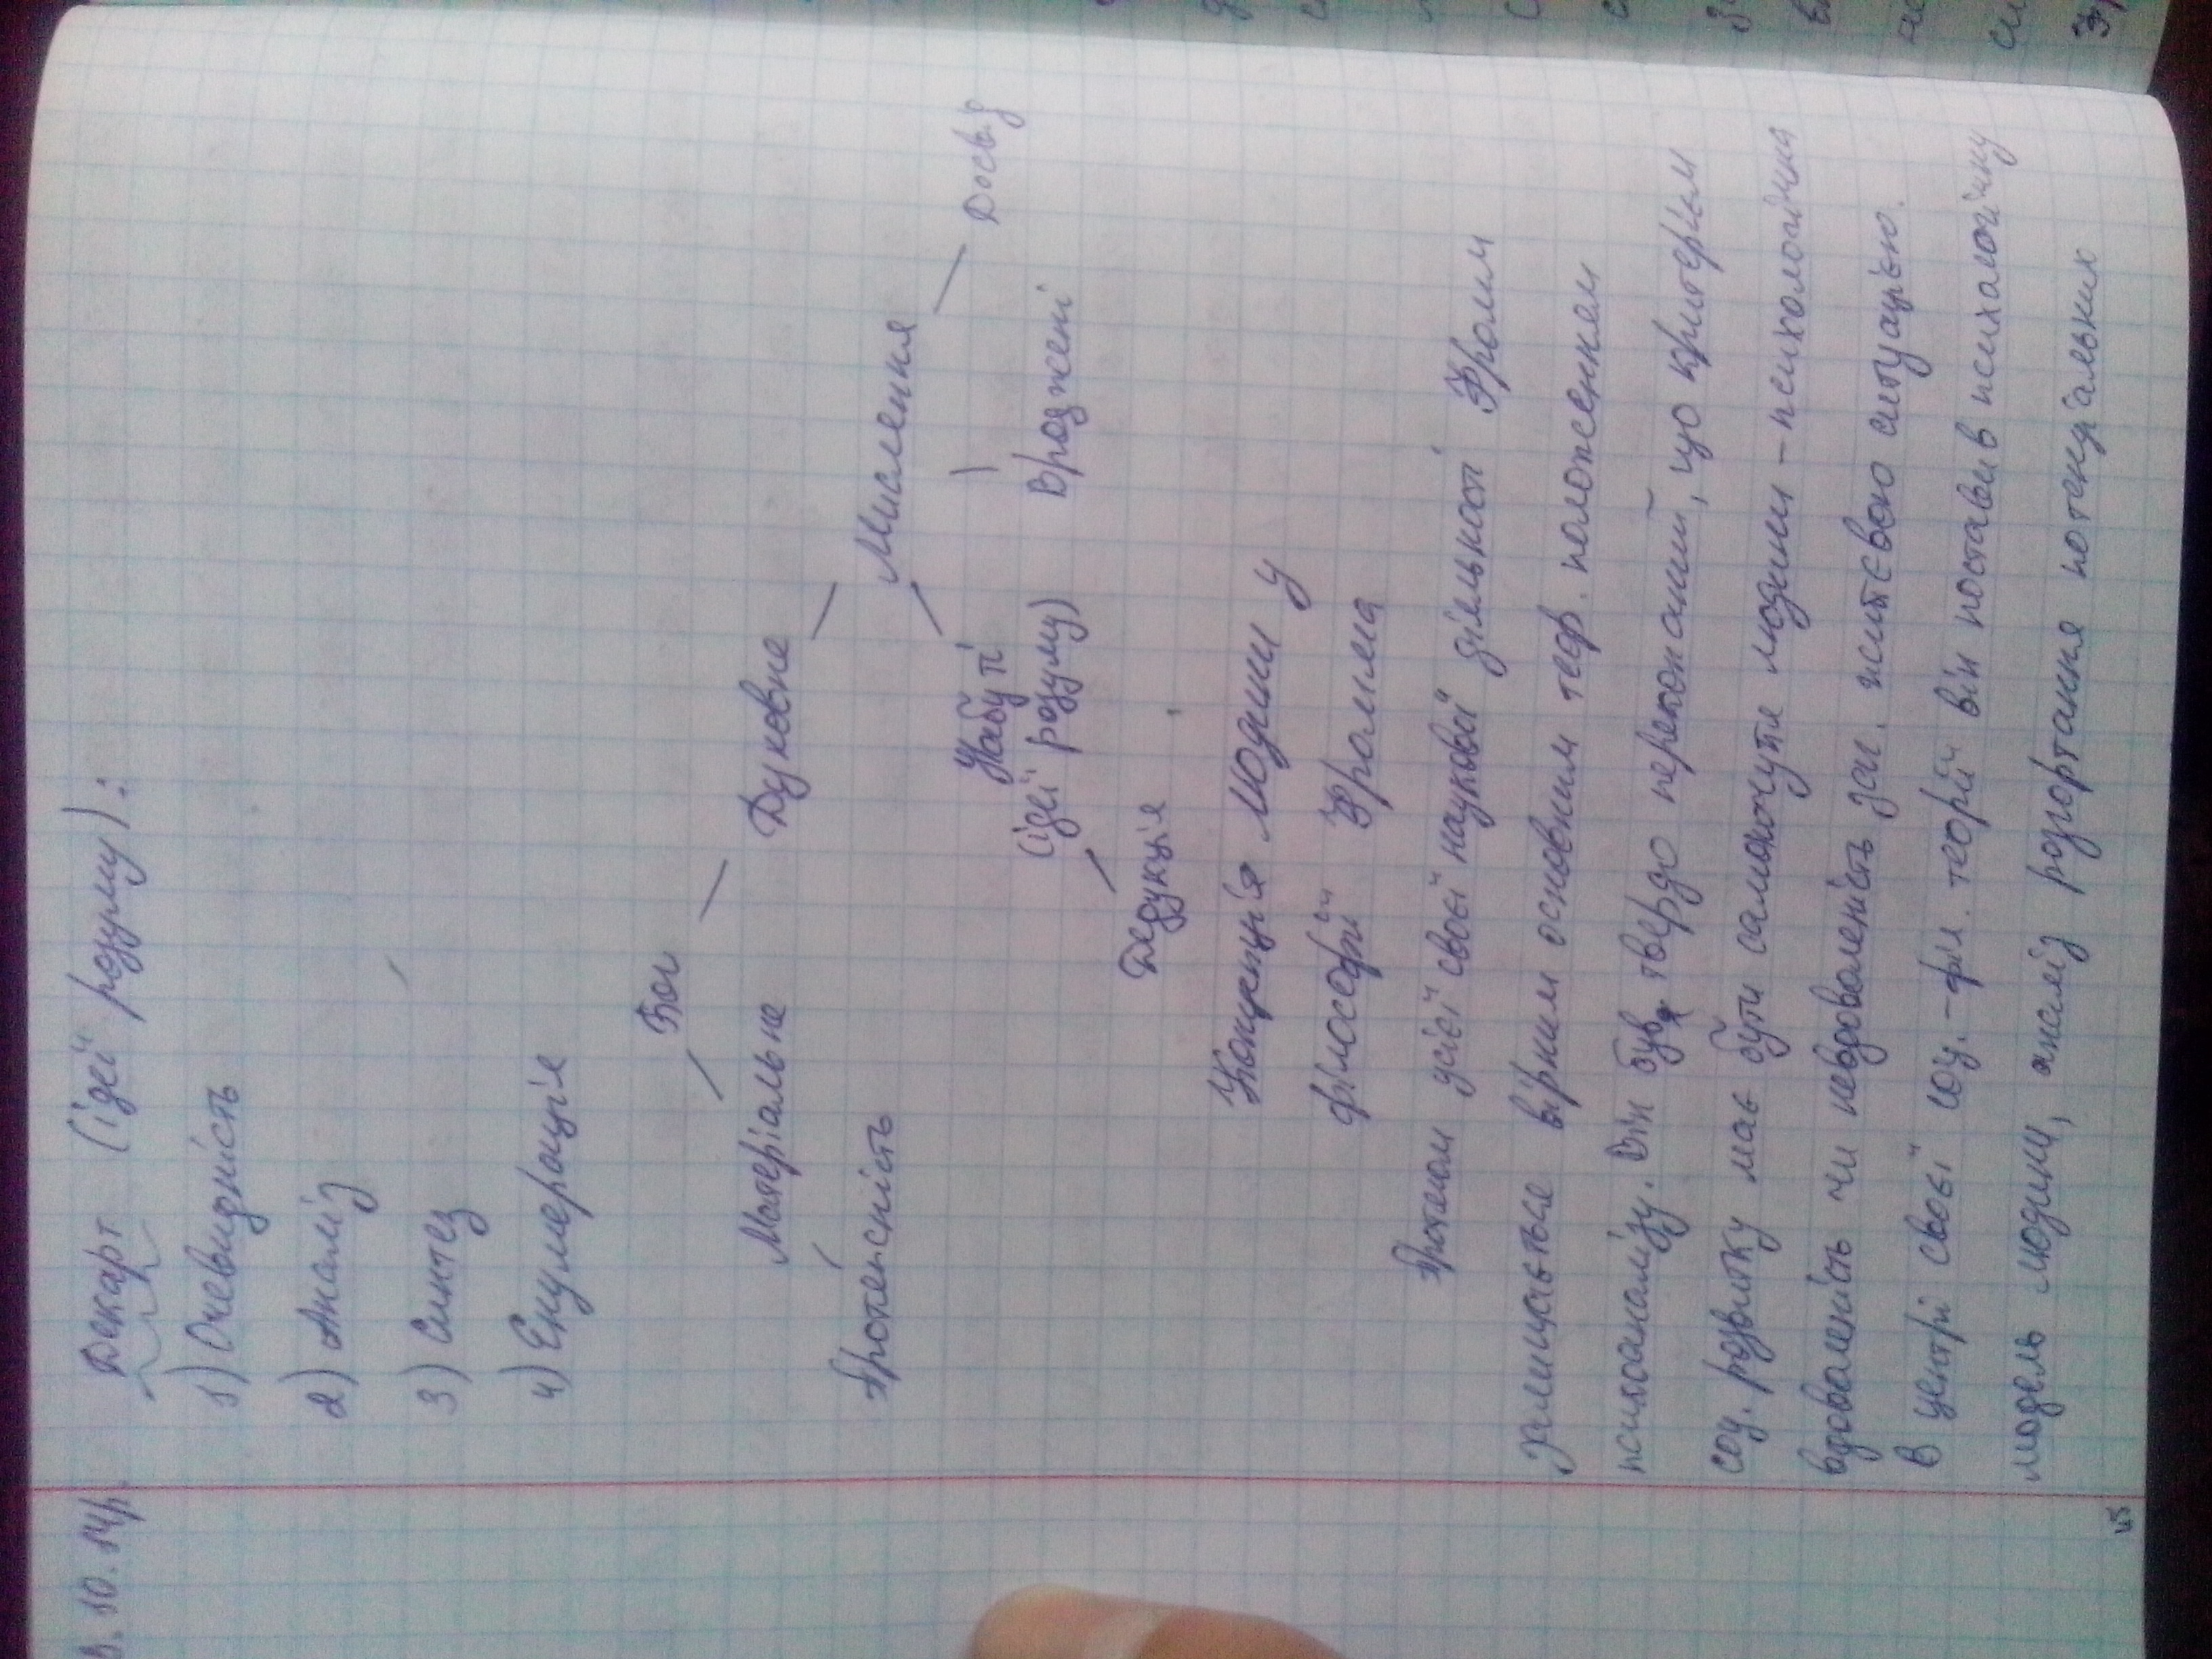 .10.14р.
Декарт (ідеї розуму):
1) Очевидність
2) Аналіз
3) Синтез
4) Енумерація
Бог
Матеріальне Духовне
Протяжність Мислення
Набуті Досвід
(ідеї розуму) Вроджені
Дедукція
Концепція людини у
філософії Фромма
Протягом усієї своєї наукової діяльності Фромм
залишається вірним основним теор. положенням
психоаналізу. Він був твердо переконаний, що критерієм
соц. розвитку має бути самопочуття людини – психологічна
вдоволеність чи невдоволеність заг. життєвою ситуацією.
В центрі своєї соц.-філ. теорії він поставив психологічну
модель людини, аналіз розгортання потенціальних
45